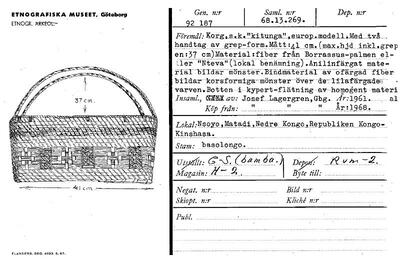 ETNOGRAFISKA MUSEET, Göteborg
ETNOGR. ARKEOL.
37cm.
41 cm.
Gen. n:r
92 187
Saml. n:r
68.13.269.
Dep. n:r
Föremål: Korg,s.k."kitunga", europ.modell.Med två
handtag av grep-form. Mått:41 cm.(max.hjd inkl.grep-
en:37 cm)Material:fiber från Borrassus-palmen el-
ler "Nteva"(lokal benämning).Anilinfärgat mate-
rial bildar mönster.Bindmaterial av ofärgad fiber
bildar korsformiga mönster över de lilafärgade
varven.Botten i kypert-flätning av homogent materi
al
Insaml. av: Josef Lagergren,Gbg. År:1961.
Köp från: " " " År:1968.
Lokal: Nsoyo,Matadi,Nedre Kongo,Republiken Kongo-
Kinshasa.
Stam: basolongo.
Utställt: G-S. (bamba.) Depon: Rum-2.
Magasin: H-2. Byte till:
Negat. n:r Bild n:r
Skiopt. n:r Kliché n:r
Publ.